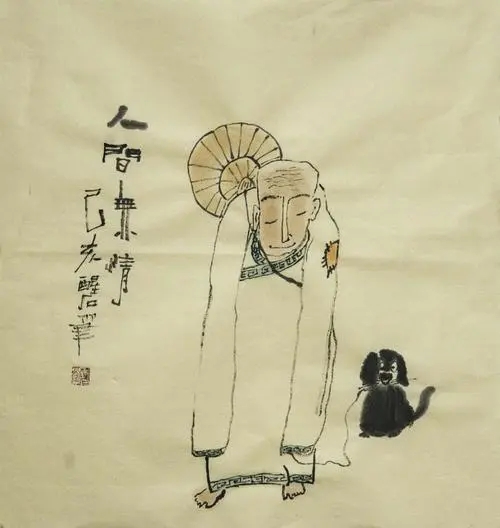 人間無情
己亥醒筆